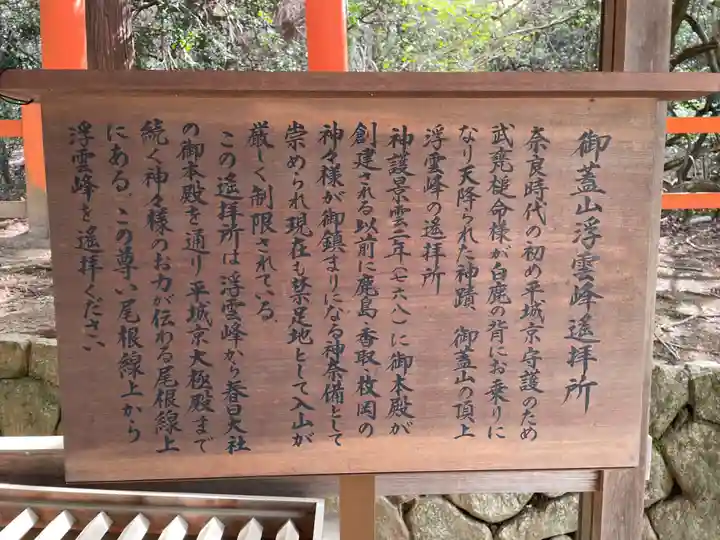 御蓋山浮雲峰遙拝所
奈良時代の初め平城京守護のため
武甕槌命様が白鹿の背にお乗りに
なり天降られた神蹟、御蓋山の頂上
浮雲峰の遙拝所
神護景雲二年（七六八）に御本殿が
創建される以前に鹿島、香取、枚岡の
神々様が御鎮まりになる神奈備として
崇められ現在も禁足地として入山が
厳しく制限されている。
この遙拝所は浮雲峰から春日大社
の御本殿を通り平城京大極殿まで
続く神々様のお力が伝わる尾根線上
にある。この尊い尾根線上から
浮雲峰を遙拝ください。